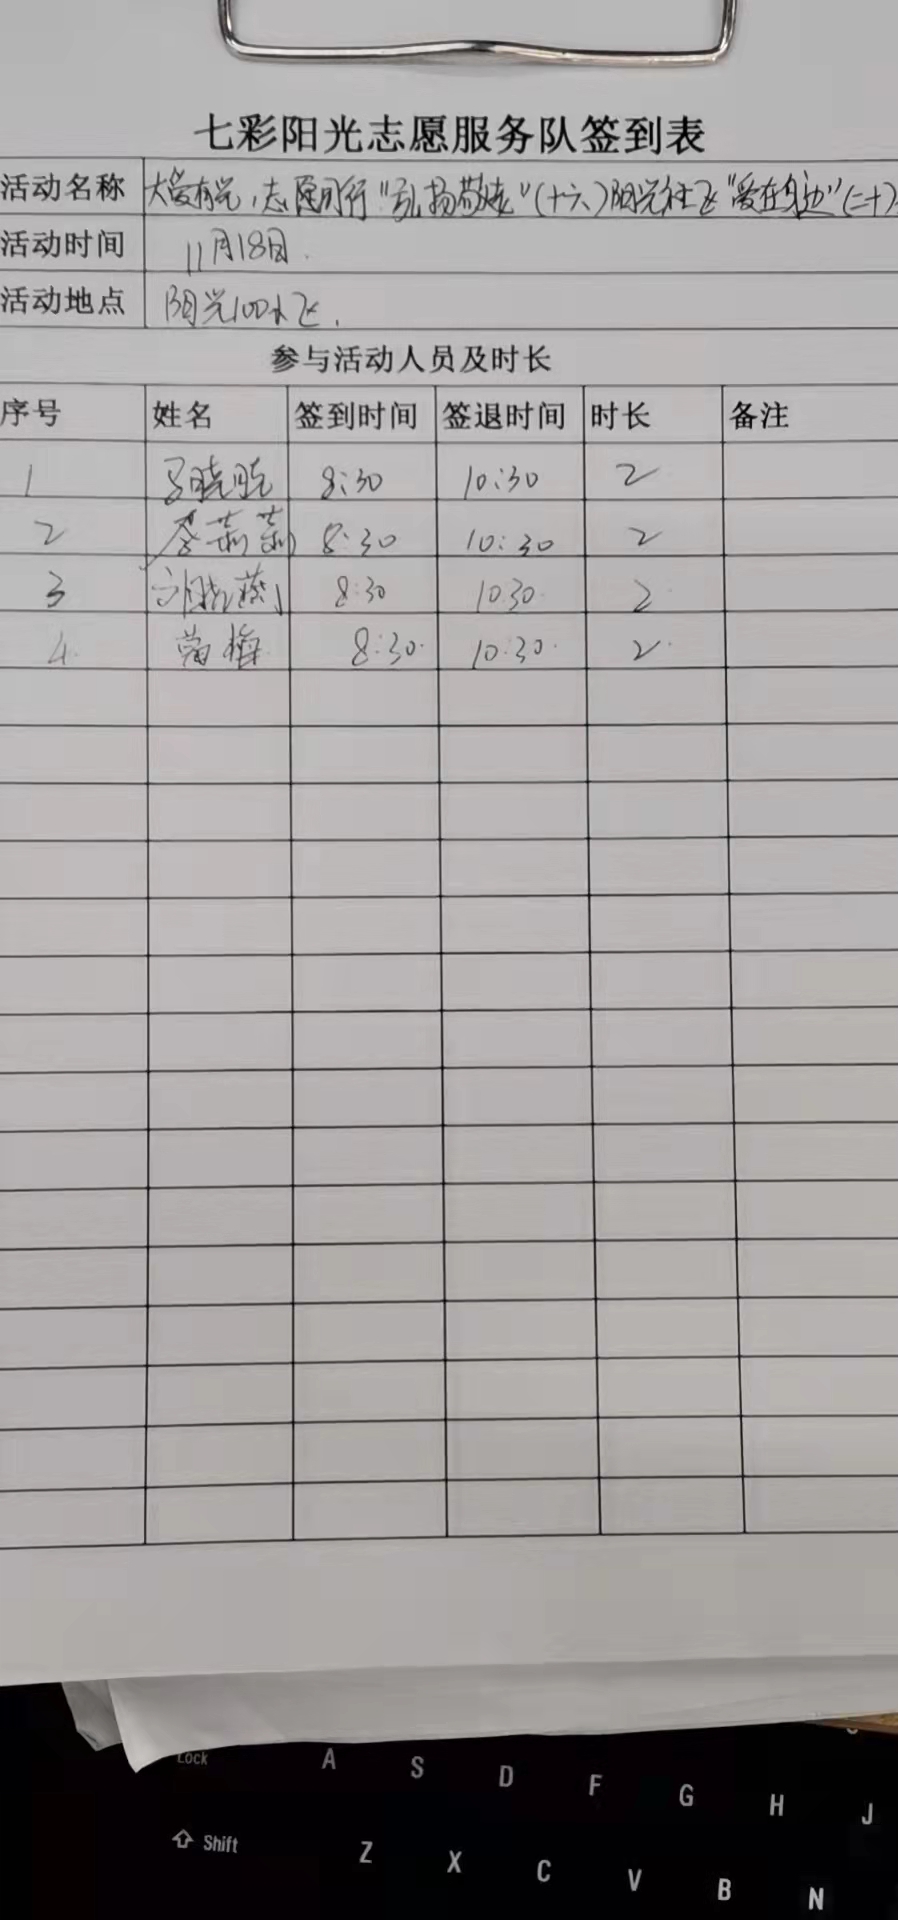 七彩阳光志愿服务队签到表
活动名称 大爱有光,志愿同行"弘扬敬老"(十六)阳光社区"爱在身边"(二十)
活动时间 11月18日.
活动地点 阳光100小区.
参与活动人员及时长
序号 姓名 签到时间 签退时间 时长 备注
1 马晓晓 8:30 10:30 2
2 李莉莉 8:30 10:30 2
3 刘晓燕 8:30 10:30 2
4. 梅 8:30. 10:30. 2.
Lock A S D F G H J
Shift Z X C V B N